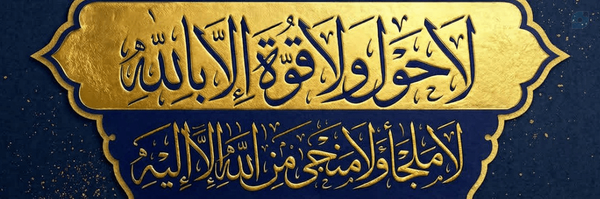 لَا حَوْلَ وَلَا قُوَّةَ إِلَّا بِاللَّهِ
لَا مَلْجَأَ وَلَا مَنْجَى مِنَ اللَّهِ إِلَّا إِلَيْهِ